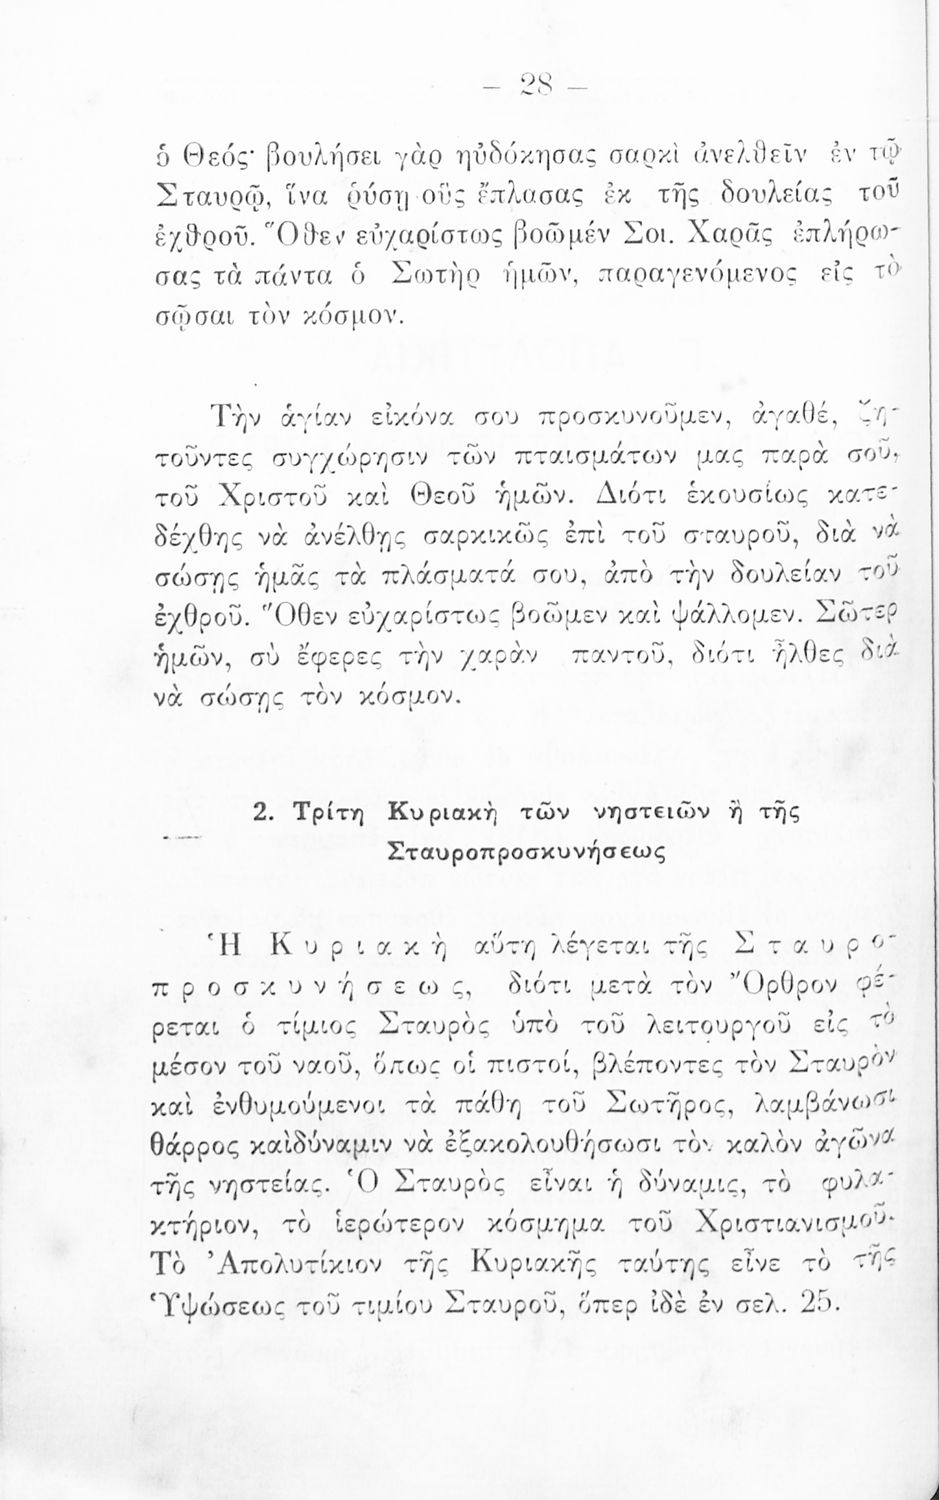 – 28 –
ὁ Θεός· βουλήσει γὰρ ηὐδόκησας σαρκὶ ἀνελθεῖν ἐν τῷ
Σταυρῷ, ἵνα ῥύσῃ οὓς ἔπλασας ἐκ τῆς δουλείας τοῦ
ἐχθροῦ. Ὅθεν εὐχαρίστως βοῶμέν Σοι. Χαρᾶς ἐπλήρω-
σας τὰ πάντα ὁ Σωτὴρ ἡμῶν, παραγενόμενος εἰς τὸ
σῷσαι τὸν κόσμον.
Τὴν ἁγίαν εἰκόνα σου προσκυνοῦμεν, ἀγαθέ, ζη-
τοῦντες συγχώρησιν τῶν πταισμάτων μας παρὰ σοῦ,
τοῦ Χριστοῦ καὶ Θεοῦ ἡμῶν. Διότι ἑκουσίως κατε-
δέχθης νὰ ἀνέλθῃς σαρκικῶς ἐπὶ τοῦ σταυροῦ, διὰ νὰ
σώσῃς ἡμᾶς τὰ πλάσματά σου, ἀπὸ τὴν δουλείαν τοῦ
ἐχθροῦ. Ὅθεν εὐχαρίστως βοῶμεν καὶ ψάλλομεν. Σῶτερ
ἡμῶν, σὺ ἔφερες τὴν χαρὰν παντοῦ, διότι ἦλθες διὰ
νὰ σώσῃς τὸν κόσμον.
2. Τρίτη Κυριακὴ τῶν νηστειῶν ἢ τῆς
Σταυροπροσκυνήσεως
Ἡ Κυριακὴ αὕτη λέγεται τῆς Σταυρο-
προσκυνήσεως, διότι μετὰ τὸν Ὄρθρον φέ-
ρεται ὁ τίμιος Σταυρὸς ὑπὸ τοῦ λειτουργοῦ εἰς τὸ
μέσον τοῦ ναοῦ, ὅπως οἱ πιστοί, βλέποντες τὸν Σταυρὸν
καὶ ἐνθυμούμενοι τὰ πάθη τοῦ Σωτῆρος, λαμβάνωσι
θάρρος καὶδύναμιν νὰ ἐξακολουθήσωσι τὸν καλὸν ἀγῶνα
τῆς νηστείας. Ὁ Σταυρὸς εἶναι ἡ δύναμις, τὸ φυλα-
κτήριον, τὸ ἱερώτερον κόσμημα τοῦ Χριστιανισμοῦ.
Τὸ Ἀπολυτίκιον τῆς Κυριακῆς ταύτης εἶνε τὸ τῆς
Ὑψώσεως τοῦ τιμίου Σταυροῦ, ὅπερ ἰδὲ ἐν σελ. 25.